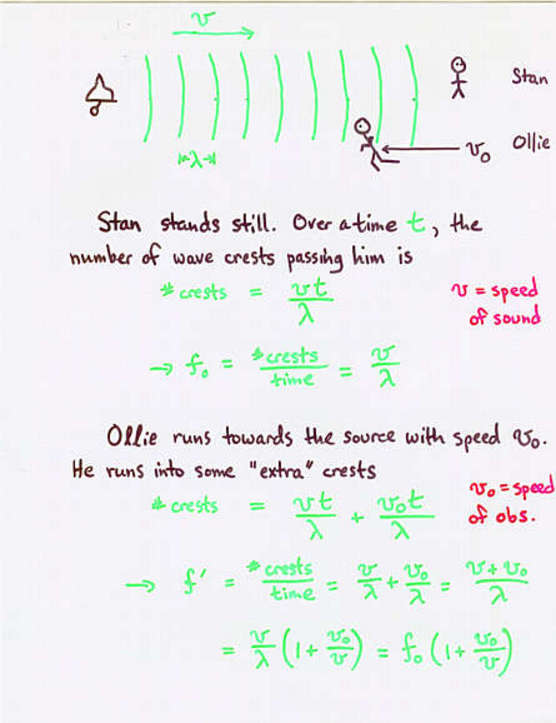 v
Stan
|←λ→|
v₀ Ollie
Stan stands still. Over a time t, the
number of wave crests passing him is
# crests = vt/λ
v = speed
of sound
→ f₀ = # crests/time = v/λ
Ollie runs towards the source with speed v₀.
He runs into some "extra" crests
# crests = vt/λ + v₀t/λ
v₀ = speed
of obs.
→ f' = # crests/time = v/λ + v₀/λ = v + v₀/λ
= v/λ (1 + v₀/v) = f₀ (1 + v₀/v)